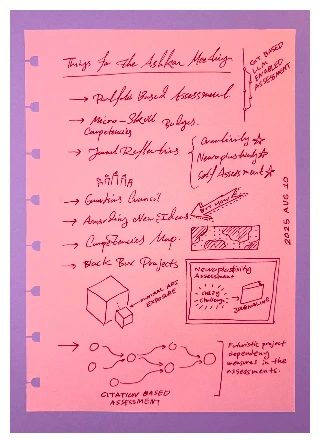 Things for the Ashkan Meeting
GIT BASED
LLM
ENABLED
ASSESSMENT
→ Portfolio Based Assessment
→ Micro-Skill Badges.
Competencies
→ Journal Reflections
Creativity
Neuroplasticity
Self Assessment
→ Guardians Council
→ Awarding New Ideas
→ Competencies Map.
→ Black Box Projects
2025 AUG 10
Neuroplasticity
Assessment
Crazy
Challenge
JOURNALING
MINIMAL API
EXPOSURE
Futuristic project
dependency
measures in the
assessments.
CITATION BASED
ASSESSMENT